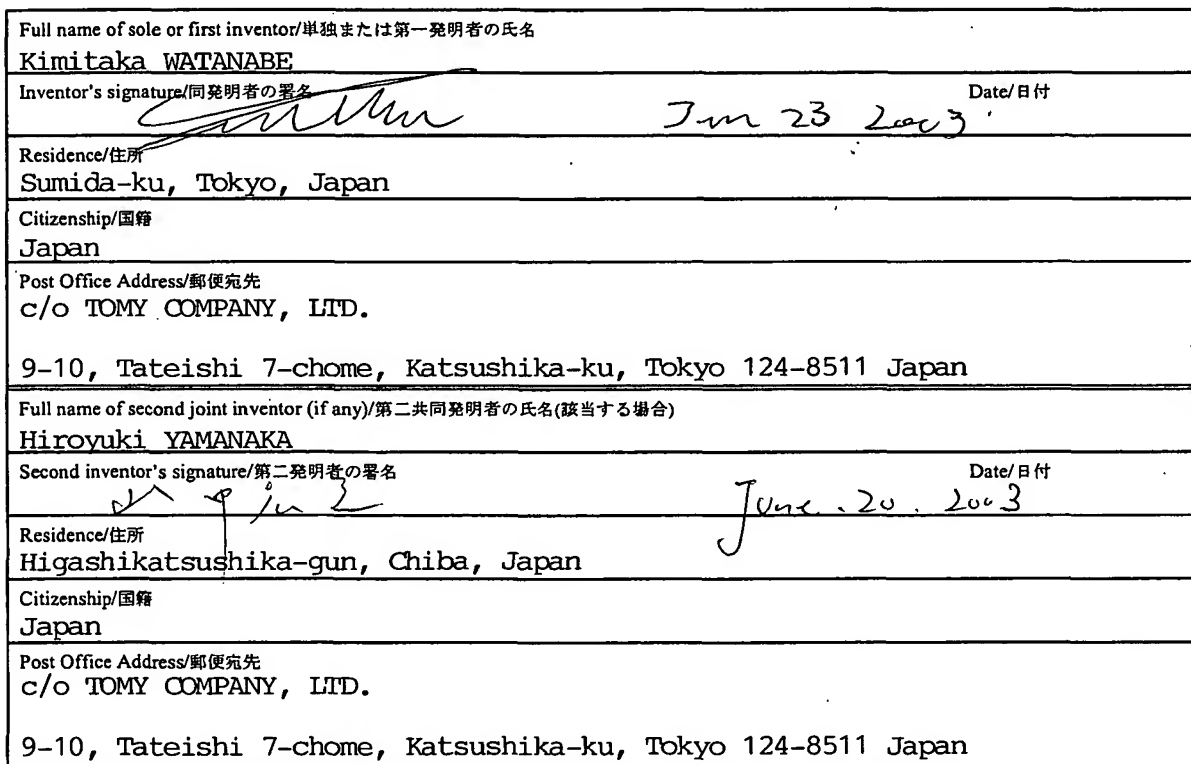 Full name of sole or first inventor/単独または第一発明者の氏名
Kimitaka WATANABE
Inventor's signature/同発明者の署名 Date/日付
23 2003
Residence/住所
Sumida-ku, Tokyo, Japan
Citizenship/国籍
Japan
Post Office Address/郵便宛先
c/o TOMY COMPANY, LTD.
9-10, Tateishi 7-chome, Katsushika-ku, Tokyo 124-8511 Japan
Full name of second joint inventor (if any)/第二共同発明者の氏名(該当する場合)
Hiroyuki YAMANAKA
Second inventor's signature/第二発明者の署名 Date/日付
June. 20. 2003
Residence/住所
Higashikatsushika-gun, Chiba, Japan
Citizenship/国籍
Japan
Post Office Address/郵便宛先
c/o TOMY COMPANY, LTD.
9-10, Tateishi 7-chome, Katsushika-ku, Tokyo 124-8511 Japan